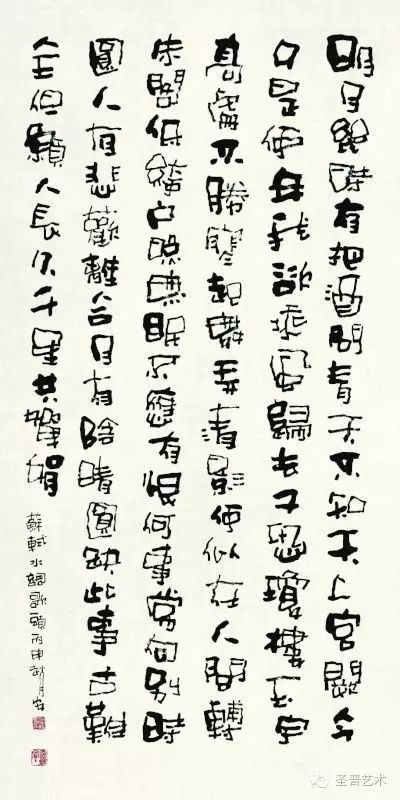 明月幾時有把酒問青天不知天上宮闕今
夕是何年我欲乘風歸去又恐瓊樓玉宇
高處不勝寒起舞弄清影何似在人間轉
朱閣低綺戶照無眠不應有恨何事常向別時
圓人有悲歡離合月有陰晴圓缺此事古難
全但願人長久千里共嬋娟
蘇軾水調歌頭丙申秋月
圣普艺术